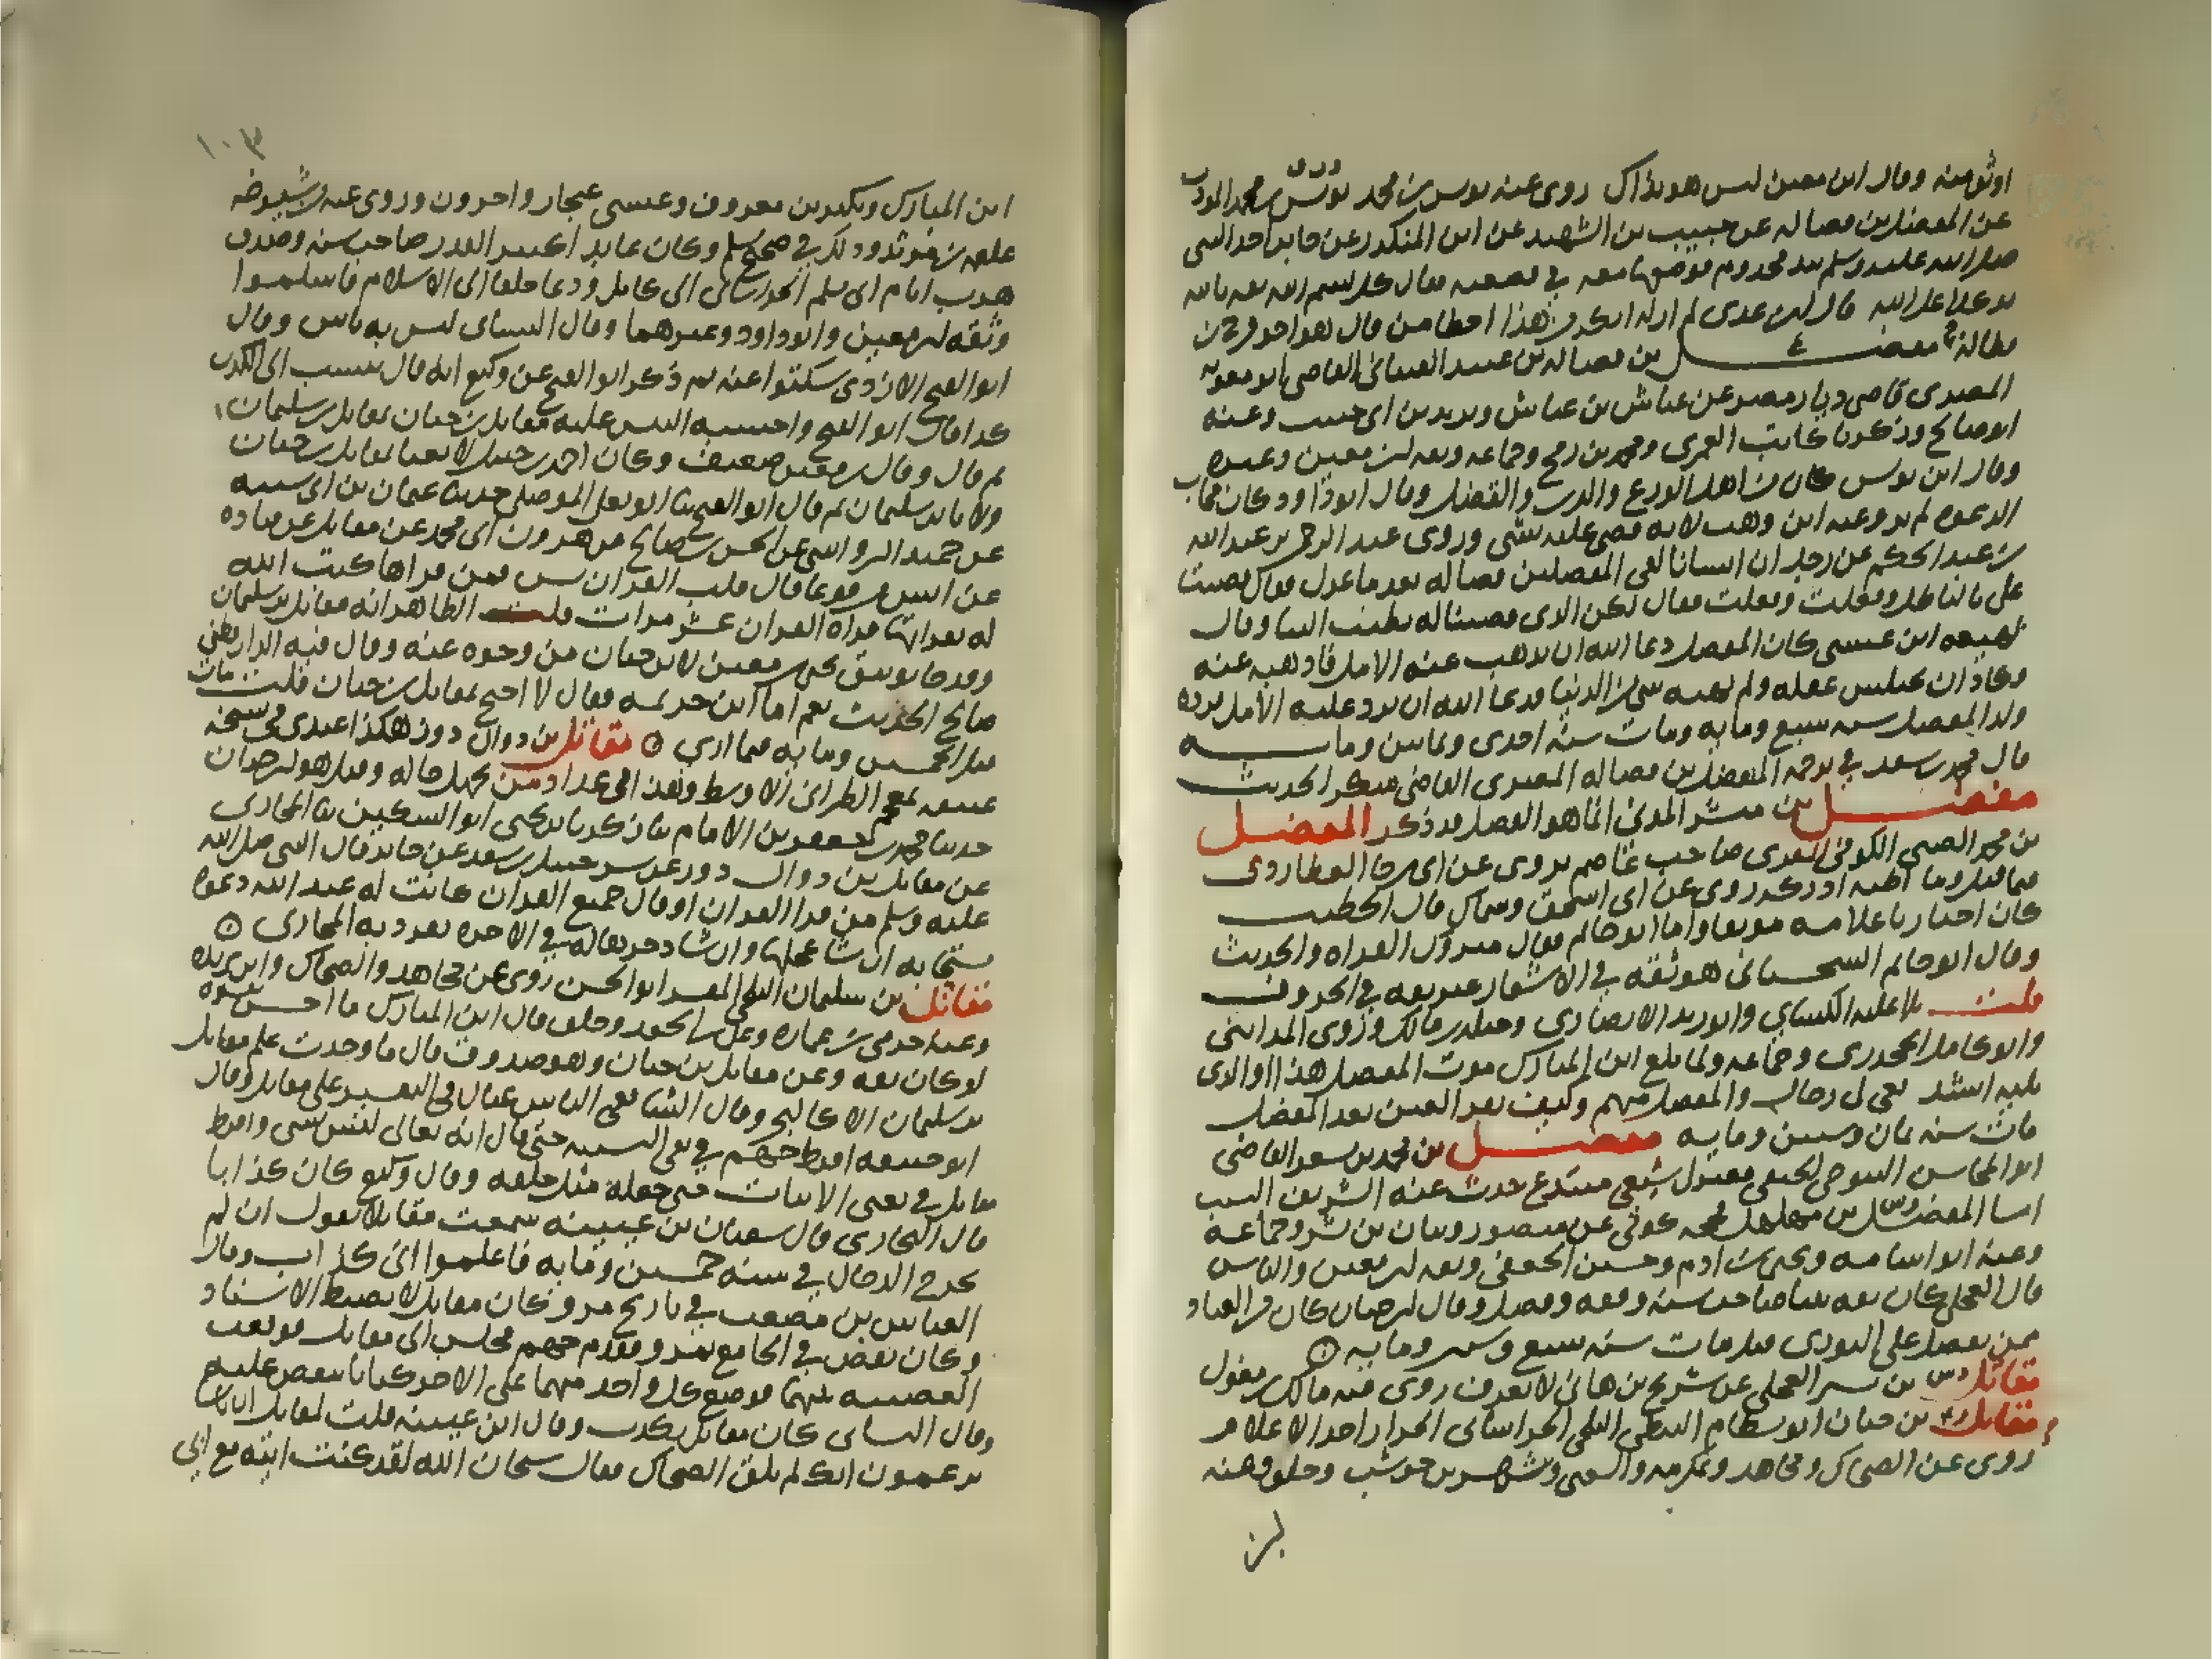 اوثق منه وقال ابن معين ليس هو بذاك روى عنه يونس بن محمد يونس بن محمد المودب
عن المفضل بن فضاله عن حبيب بن الشهيد عن ابن المنكدر عن جابر اخذ النبى
صلى الله عليه وسلم بيد مجذوم فوضعها معه في قصعته فقال كل بسم الله ثقه بالله
وتوكلا على الله قال ابن عدى لم ار له انكر من هذا اخطا من قال هو اخو فرج بن
فضالة مفضل بن فضاله بن عبيد القتبانى القاضى ابو معويه
المصرى قاضى ديار مصر عن عياش بن عباش ويزيد بن ابى حبيب وعنه
ابو صالح وزكريا كاتب العمرى ومحمد بن رمح وجماعه وثقه ابن معين وغيره
وقال ابن يونس كان من اهل الورع والدين والفضل وقال ابو داود كان مجاب
الدعوه لم يرو عنه ابن وهب لانه قضى عليه بشى وروى عبد الرحمن بن عبد الله
بن عبد الحكم عن رجل ان انسانا لقى المفضل بن فضاله بعد ما عزل فقال قضيت
على بالباطل وفعلت وفعلت فقال لكن الذى قضينا له يطيب الثنا وقال
لهيعه ابن عيسى كان المفضل دعا الله ان يذهب عنه الامل فاذهبه عنه
وكاد ان يختلس عقله ولم يهنه شى من الدنيا فدعا الله ان يرد عليه الامل فرده
ولد المفضل سنه سبع ومايه ومات سنة احدى وثمانين ومايه
قال محمد بن سعد في ترجمة المفضل بن فضاله المصرى القاضى منكر الحديث
مفضل بن مبشر المدنى انما هو الفضل قد ذكر المفضل
بن محمد الضبى الكوفى المقرى صاحب عاصم يروى عن ابى رجا العطاردى
فيما قيل وما اظنه ادركه روى عن ابى اسحق وسماك قال الخطيب
كان اخباريا علامه موثقا واما ابو حاتم فقال متروك القراه والحديث
وقال ابو حاتم السجستانى هو ثقه في الاشعار غير ثقه في الحروف
قلت تلا عليه الكسائي وابو زيد الانصارى وجبله بن مالك وروى المداينى
وابو كامل الجحدرى وجماعه ولما بلغ ابن المبارك موت المفضل هذا او الذى
يليه انشد نعى لى رجال والمفضل منهم وكيف تقر العين بعد المفضل
مات سنه ثمان وستين ومايه مفضل بن محمد بن مسعر القاضى
ابو المحاسن التنوخى الحنفى معتزلى شيعى مبتدع حدث عنه الشريف النسيب
اما المفضل بن مهلهل فحجه كوفى عن منصور وبيان بن بشر وجماعة
وعنه ابو اسامه ويحيى بن ادم وحسين الجعفى وثقه ابن معين والناس
قال العجلى كان ثقه ثبتا صاحب سنه وفقه وفضل وقال ابن حبان كان من العباد
ممن يفضل على الثورى قيل مات سنه سبع وستين ومايه
مقاتل بن بشير العجلى عن شريح بن هانى لا يعرف روى عنه مالك بن مغول
مقاتل بن حيان ابو بسطام النبطى البلخى الخراسانى الخراز احد الاعلام
روى عن الضحاك ومجاهد وعكرمه والشعبى وشهر بن حوشب وخلق وعنه
ابن
١٠٣
ابن المبارك وبكير بن معروف وعيسى غنجار واخرون وروى عنه من شيوخه
علقمه بن مرثد وذلك في صحيح مسلم وكان عابدا كبير القدر صاحب سنه وصدق
هرب ايام ابى مسلم الخراسانى الى كابل ودعا خلقا الى الاسلام فاسلموا
وثقه ابن معين وابو داود وغيرهما وقال النسائى ليس به باس وقال
ابو الفتح الازدى سكتوا عنه ثم ذكر ابو الفتح عن وكيع انه قال ينسب الى الكذب
كذا قال ابو الفتح واحسبه التبس عليه مقاتل بن حيان بمقاتل بن سليمان
ثم قال وقال ابن معين ضعيف وكان احمد بن حنبل لا يعبا بمقاتل بن حيان
ولا بابن سليمان ثم قال ابو الفتح ثنا ابو يعلى الموصلى حدثنا عثمان بن ابى شيبه
عن حميد الرواسى عن الحسن بن صالح عن هرون ابى محمد عن مقاتل عن قتاده
عن انس مرفوعا قال قلب القران يس فمن قراها كتب الله
له بقراتها قراه القران عشر مرات قلت الظاهر انه مقاتل بن سليمان
وقد جا توثيق يحيى بن معين لابن حيان من وجوه عنه وقال فيه الدارقطنى
صالح الحديث نعم اما ابن خزيمه فقال لا احتج بمقاتل بن حيان قلت مات
قبل الخمسين ومايه فيما ارى مقاتل بن دوال دوز هكذا عندى في نسخه
عتيقه بمعجم الطبرانى الاوسط وهذا في عداد من يجهل حاله وقيل هو ابن حيان
حدثنا محمد بن جعفر بن الامام ثنا زكريا بن يحيى ابو السكين ثنا المحاربى
عن مقاتل بن دوال دوز عن شرحبيل بن سعد عن جابر قال النبى صلى الله
عليه وسلم من قرا القران او قال جمع القران كانت له عند الله دعوه
مستجابه ان شا عجلها وان شا ذخرها له في الاخره تفرد به المحاربى
مقاتل بن سليمان البلخى المفسر ابو الحسن روى عن مجاهد والضحاك وابن بريده
وعنه حرمى بن عماره وعلى بن الجعد وخلق قال ابن المبارك ما احسن تفسيره
لو كان ثقه وعن مقاتل بن حيان وهو صدوق قال ما وجدت علم مقاتل
بن سليمان الا كالبحر وقال الشافعى الناس عيال في التفسير على مقاتل وقال
ابو حنيفه افرط جهم في نفى التشبيه حتى قال انه تعالى ليس بشى وافرط
مقاتل في معنى الاثبات حتى جعله مثل خلقه وقال وكيع كان كذابا
قال البخارى قال سفيان بن عيينه سمعت مقاتلا يقول ان لم
يخرج الدجال في سنه خمسين ومايه فاعلموا انى كذاب وقال
العباس بن مصعب في تاريخ مرو كان مقاتل لا يضبط الاسناد
وكان يقص في الجامع بمرو فقدم جهم فجلس الى مقاتل فوقعت
العصبيه بينهما فوضع كل واحد منهما على الاخر كتابا ينقض عليه
وقال النسائى كان مقاتل يكذب وقال ابن عيينه قلت لمقاتل ان ناسا
يزعمون انك لم تلق الضحاك فقال سبحان الله لقد كنت اتيه مع ابى